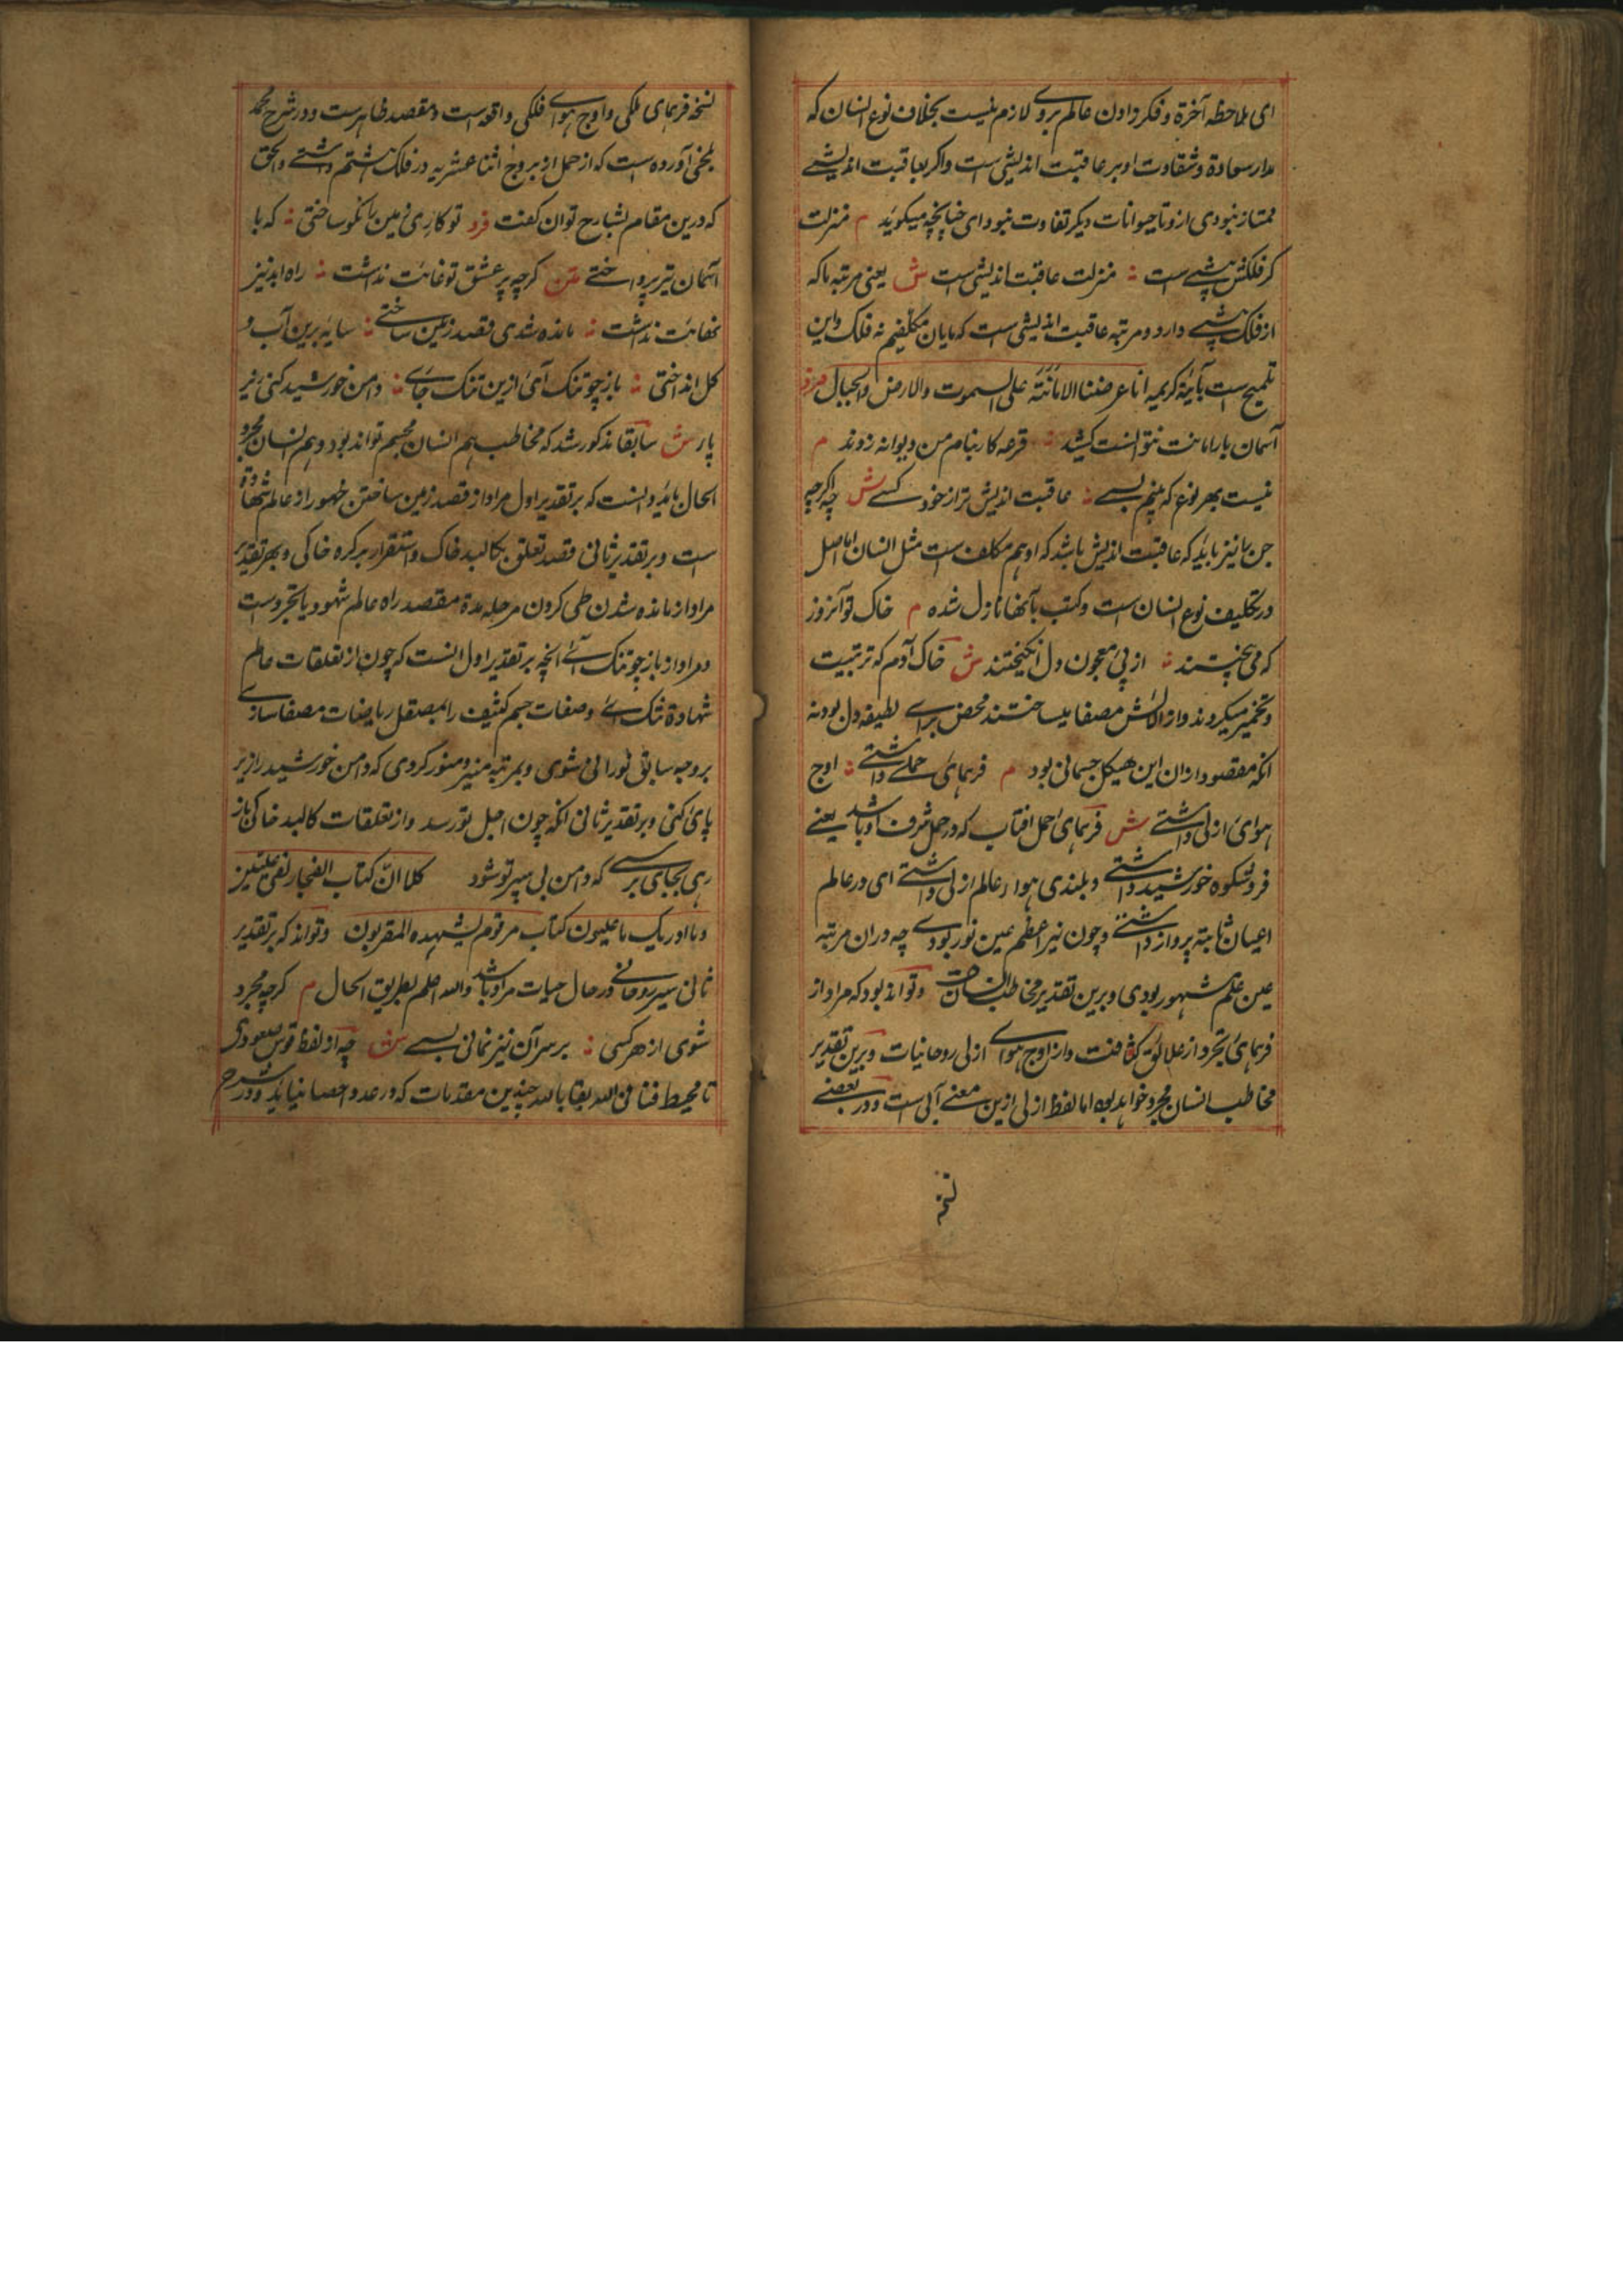 ای ملاحظه آخرة و فکر دادن عالم بروے لازم نیست بخلاف نوع انسان که
مدار سعادة و شقاوت او بر عاقبت اندیشی است و اکر بعاقبت اندیشے
ممتاز نبودی از و تا حیوانات دیکر تفاوت نبودای چنانچه میکوید م منزلت
کر فلکش پیشے است ؞ منزلت عاقبت اندیشی است ش یعنی مرتبه ما که
از فلک پیشے دارد و مرتبه عاقبت اندیشی است که مایان مکلفیم نه فلک و این
تلمیح است بآیة کریمه انا عرضنا الامانة علی السموت والارض والجبال
آسمان بار امانت نتوانست کشید ؞ قرعه کار بنام من دیوانه زدند م
نیست بهر نوع که بینم بسے ؞ عاقبت اندیش تر از خود کسے ش چه اکرچه
جن را نیز باید که عاقبت اندیش باشد که او هم مکلف است مثل انسان اما اصل
در تکلیف نوع انسان است و کتب بآنها نازل شده م خاک تو آنروز
که می بیختند ؞ از پی معجون دل انکیختند ش خاک آدم که تربیت
و تخمیر میکردند و از الائش مصفا میساختند محض برای لطیفه دل بود نه
انکه مقصود ازان این هیکل جسمانی بود م فرهمای حملے داشتے ؞ اوج
هوای ازلی داشتے ش فرهمای حمل افتاب که در حمل شرف او باشد یعنے
فر و شکوه خورشید داشتے و بلندی هوا در عالم ازلی داشتے ای در عالم
اعیان ثابته پرواز داشتے و چون نیر اعظم عین نور بودے چه دران مرتبه
عین علم مشهور بودی و برین تقدیر مخاطب انسان و تواند بود که مراد از
فرهمای تجرد از علائق کثافت و از اوج هواے ازلی روحانیات و برین تقدیر
مخاطب انسان مجرد خواهد بود اما لفظ ازلی ازین معنے آبی است و در بعضے
نسخه
نسخه فرهمای ملکی و اوج هوایے فلکی واقع است و مقصد ظاهر است و در شرح محمد
بلخی آورده است که از حمل از بروج اثنا عشریه در فلک هشتم داشتے و الحق
که درین مقام بشارح توان کفت فرد تو کاری زمین را نکو ساختی ؞ که با
آسمان نیز پرداختے متن کرچه پر عشق تو غایت نداشت ؞ راه ابد نیز
نهایت نداشت ؞ مانده شدی قصد زمین ساختے ؞ سایه برین آب و
کل انداختی ؞ باز چو تنک آئی ازین تنک جاے ؞ دامن خورشید کنی زیر
پای ش سابقا مذکور شد که مخاطب هم انسان مجسم تواند بود و هم انسان مجرد
الحال باید دانست که بر تقدیر اول مراد از قصد زمین ساختن ظهور از عالم شهادة
است و بر تقدیر ثانی قصد تعلق بکالبد خاک و استقرار بر کره خاکی و بهر تقدیر
مراد از مانده شدن طی کردن مرحله مدة مقصد راه عالم شهود یا تجرد است
و مراد از باز چو تنک آئے انچه بر تقدیر اول انست که چون از تعلقات عالم
شهادة تنک ائے و صفات جسم کثیف را بمصقل ریاضات مصفا سازے
بر وجه سابق نورانی شوی و بمرتبه منیر و منور کردی که دامن خورشید را زیر
پای کنی و بر تقدیر ثانی انکه چون اجل تو رسد و از تعلقات کالبد خاکی باز
رهی بجای برسے که دامن بی سپر تو شود کلا ان کتاب الفجار لفی علیین
و ما ادریک ما علیون کتاب مرقوم یشهده المقربون و تواند که بر تقدیر
ثانی سیر روحانے در حال حیات مراد باشد والله اعلم بطریق الحال م کرچه مجرد
شوی از هر کسی ؞ بر سر آن نیز نمانی بسے ش چه از لفظ قوس صعودی
تا محیط فنا فی الله بقا بالله چندین مقدمات که در عد و احصا نیاید و در شرح